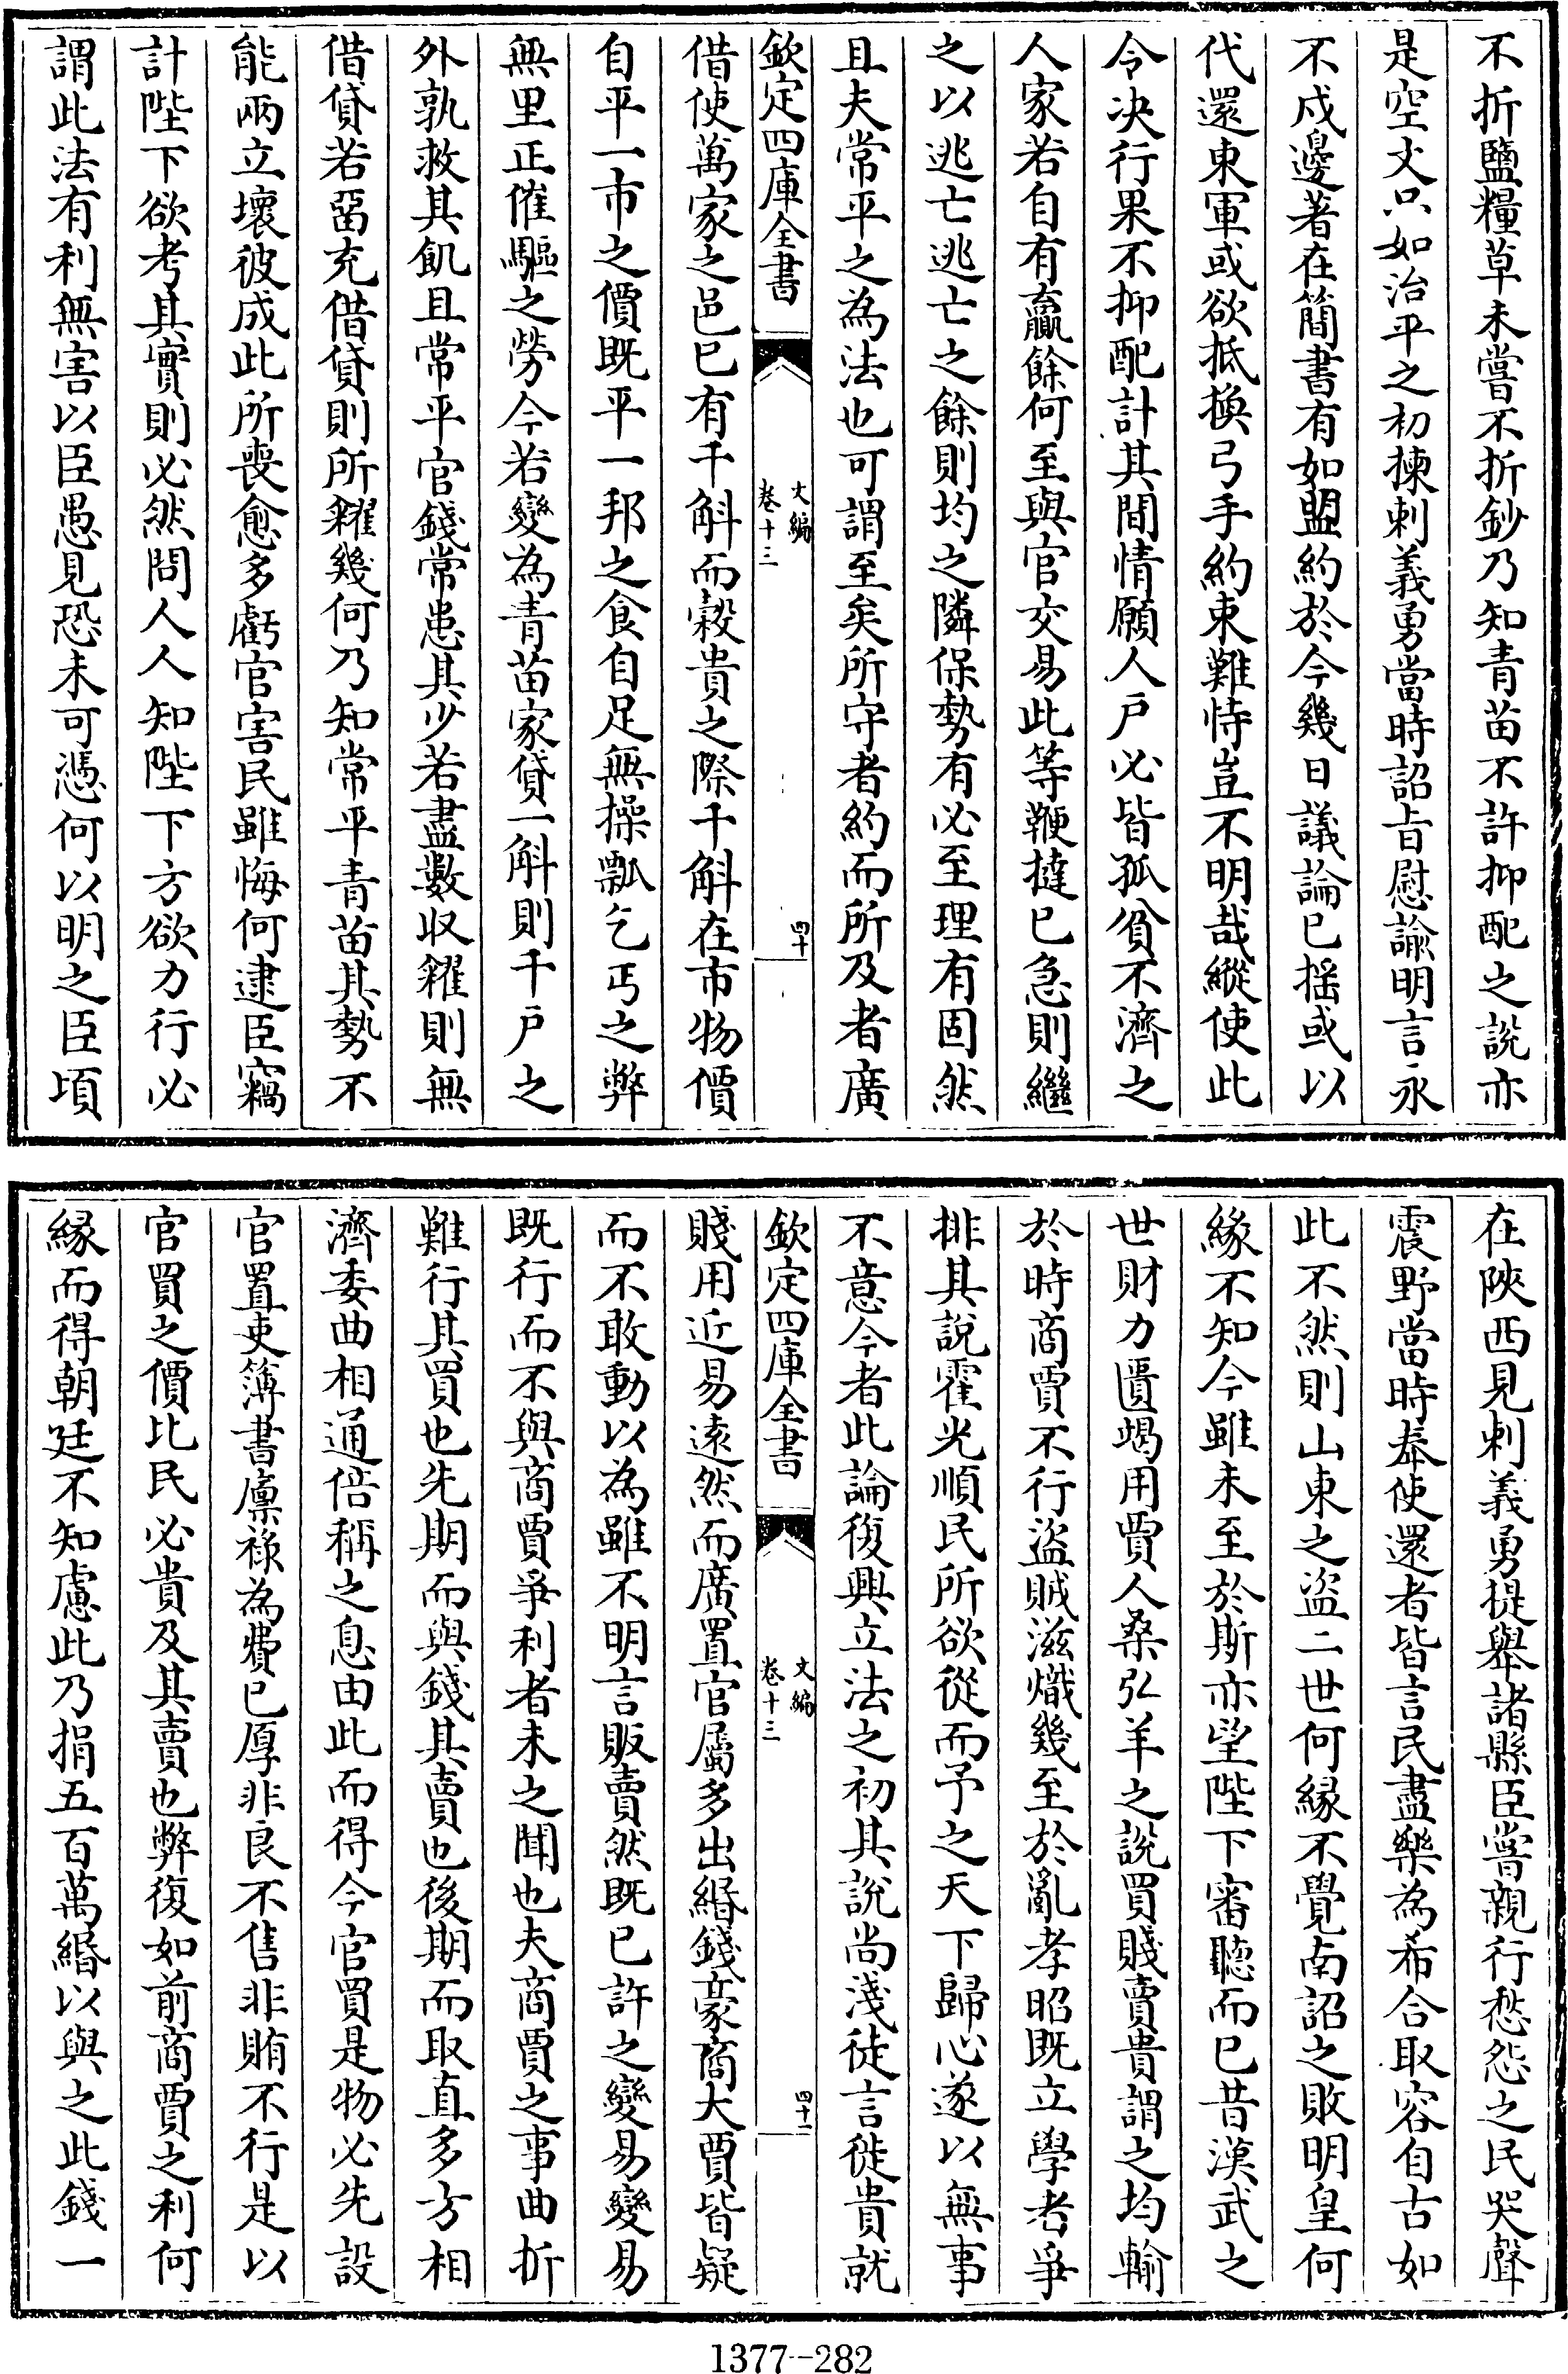 不折鹽糧草未嘗不折鈔乃知青苗不許抑配之說亦
是空文只如治平之初揀刺義勇當時詔旨慰諭明言永
不戍邊著在簡書有如盟約於今幾日議論已搖或以
代還東軍或欲抵換弓手約束難恃豈不明哉縱使此
令决行果不抑配計其間情願人戶必皆孤貧不濟之
人家若自有贏餘何至與官交易此等鞭撻已急則繼
之以逃亡逃亡之餘則均之隣保勢有必至理有固然
且夫常平之為法也可謂至矣所守者約而所及者廣
欽定四庫全書
文編
卷十三
四十
借使萬家之邑已有千斛而穀貴之際千斛在市物價
自平一市之價既平一邦之食自足無操瓢乞丐之弊
無里正催驅之勞今若變為青苗家貸一斛則千戶之
外孰救其飢且常平官錢常患其少若盡數收糴則無
借貸若留充借貸則所糴幾何乃知常平青苗其勢不
能兩立壞彼成此所喪愈多虧官害民雖悔何逮臣竊
計陛下欲考其實則必然問人人知陛下方欲力行必
謂此法有利無害以臣愚見恐未可憑何以明之臣頃
在陝西見刺義勇提舉諸縣臣嘗親行愁怨之民哭聲
震野當時奉使還者皆言民盡樂為希合取容自古如
此不然則山東之盜二世何緣不覺南詔之敗明皇何
緣不知今雖未至於斯亦望陛下審聽而已昔漢武之
世財力匱竭用賈人桑弘羊之說買賤賣貴謂之均輸
於時商賈不行盜賊滋熾幾至於亂孝昭既立學者爭
排其說霍光順民所欲從而予之天下歸心遂以無事
不意今者此論復興立法之初其說尚淺徒言徙貴就
欽定四庫全書
文編
卷十三
四十一
賤用近易遠然而廣置官屬多出緡錢豪商大賈皆疑
而不敢動以為雖不明言販賣然既已許之變易變易
既行而不與商賈爭利者未之聞也夫商賈之事曲折
難行其買也先期而與錢其賣也後期而取直多方相
濟委曲相通倍稱之息由此而得今官買是物必先設
官置吏簿書廪祿為費已厚非良不售非賄不行是以
官買之價比民必貴及其賣也弊復如前商賈之利何
緣而得朝廷不知慮此乃捐五百萬緡以與之此錢一
1377-282